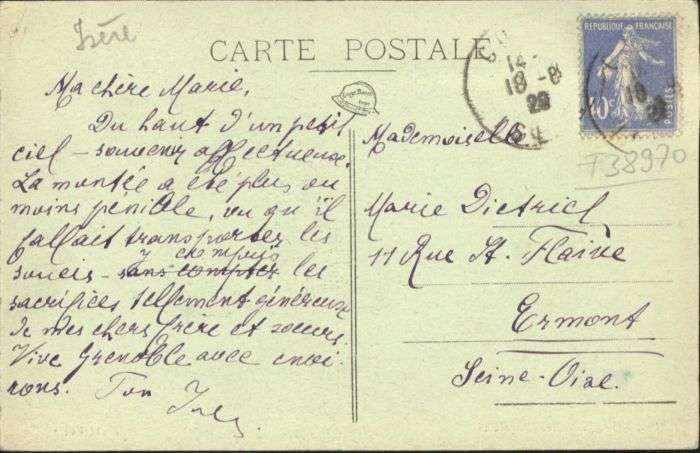 Isère
CARTE POSTALE
RÉPUBLIQUE FRANÇAISE
40c POSTES
14
18-8
26
T38970
Ma chère Marie,
Du haut d'un petit
ciel – souvenir affectueux.
La montée a été plus ou
moins pénible, vu qu'il
fallait transporter les
soucis – y compris les
sacrifices tellement généreux
de mes chers frère et soeurs.
Vive Grenoble avec envi-
rons. Ton
Mademoiselle
Marie Dietrich
11 Rue St. Flaive
Ermont
Seine-Oise.